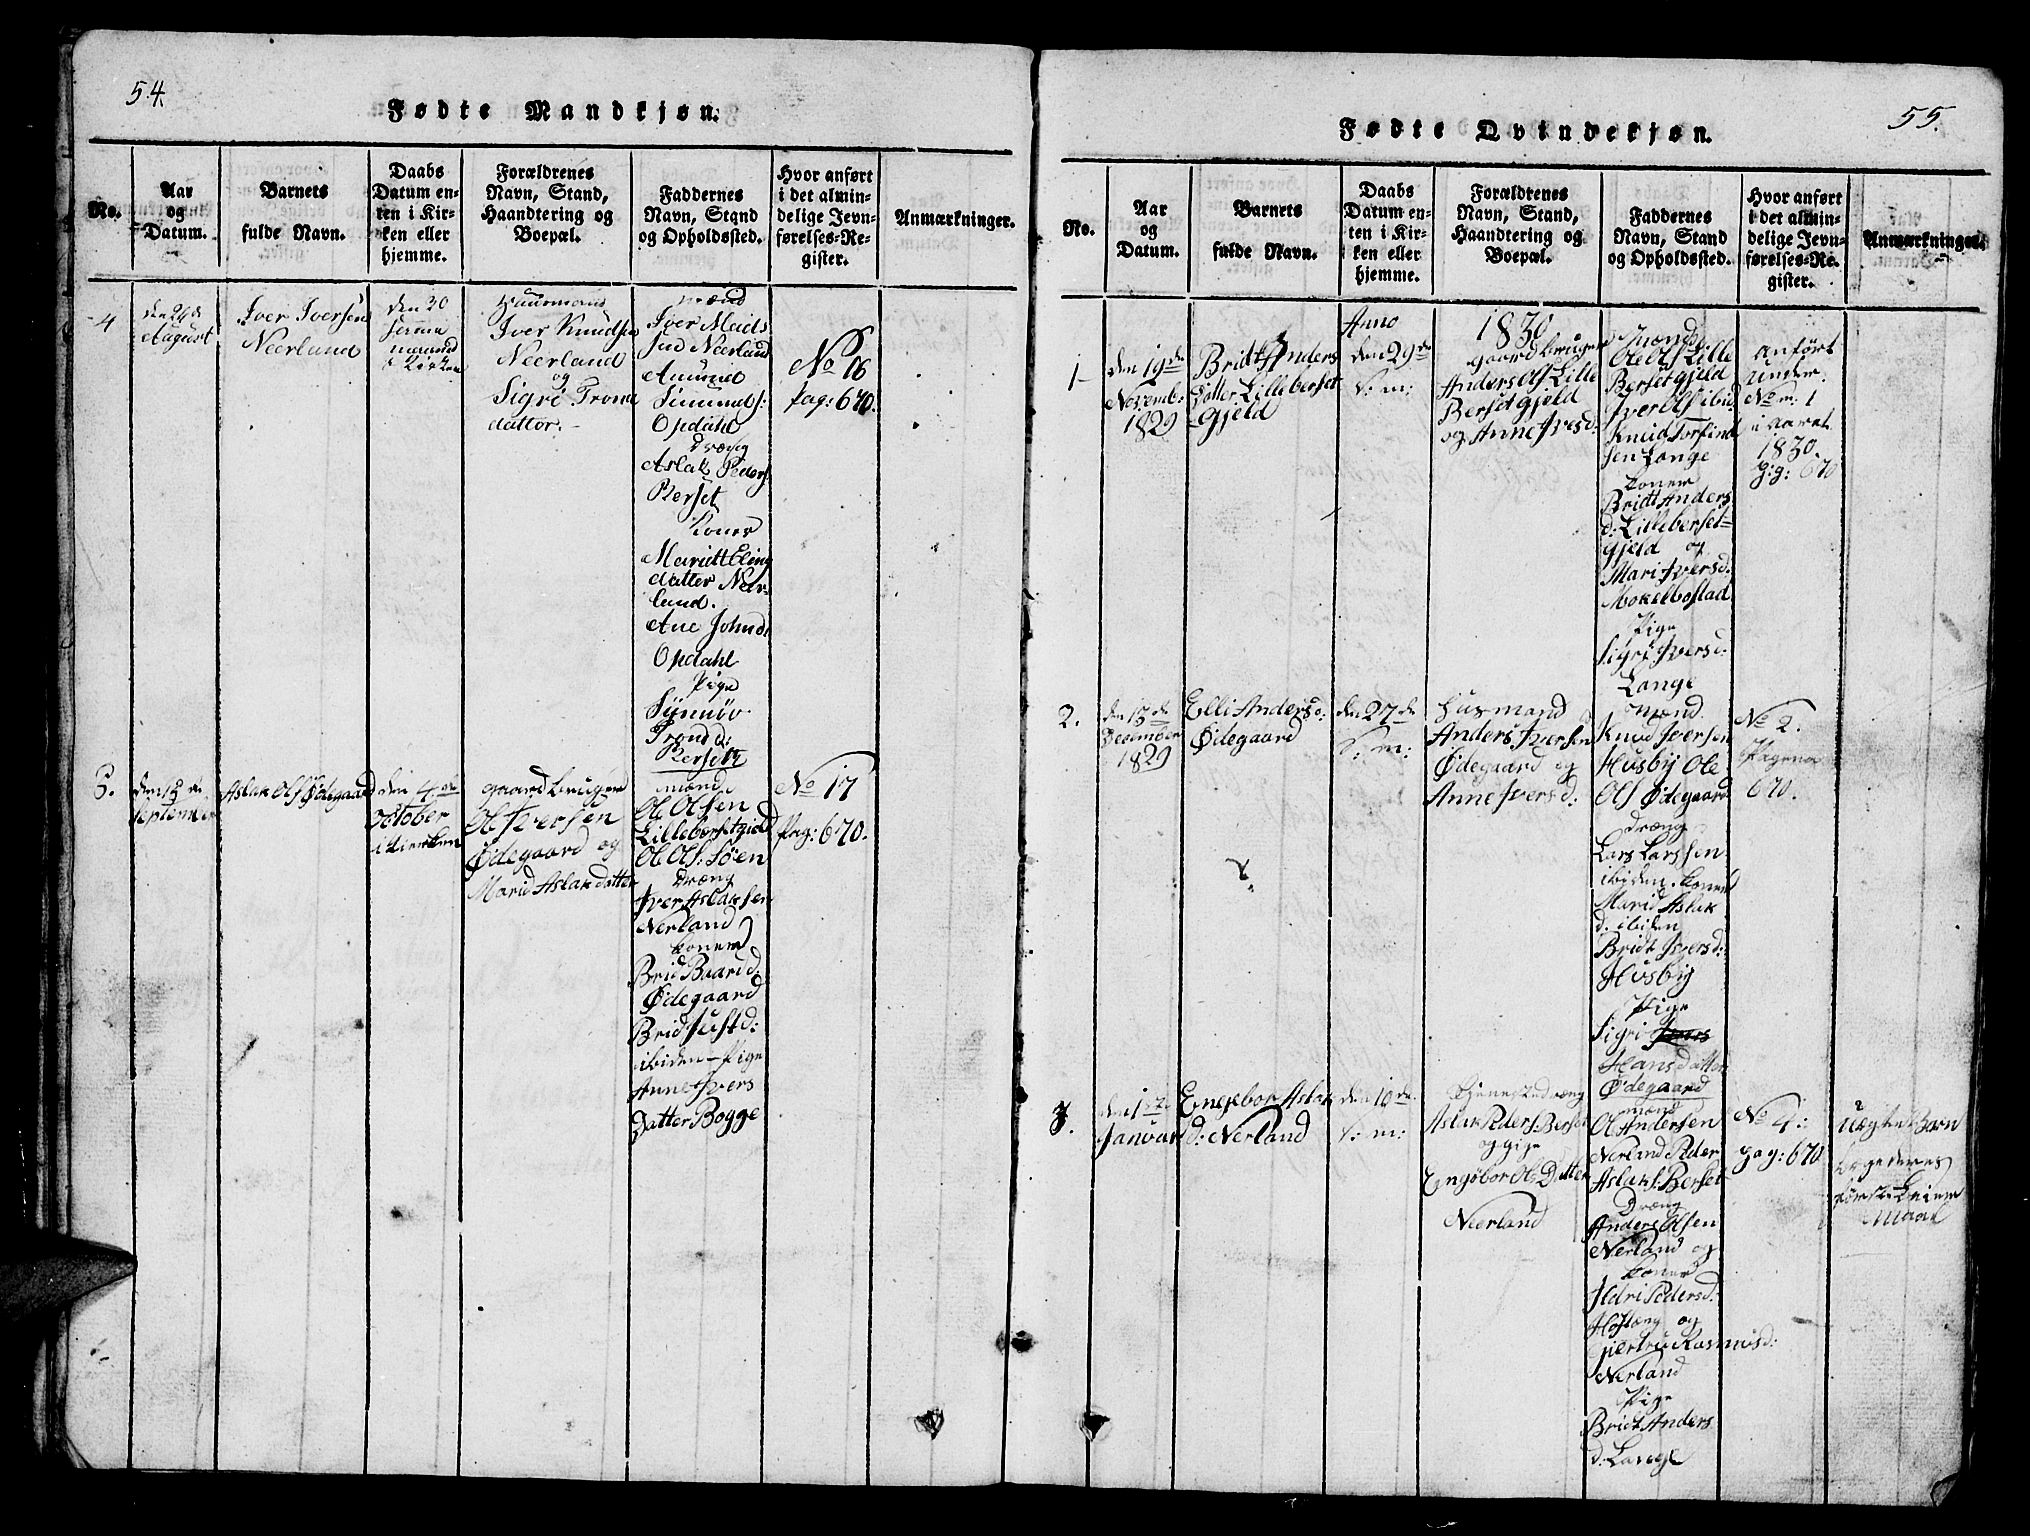 54.
Fødte Mandkjøn.
No.
Aar
og
Datum.
Barnets
fulde Navn.
Daabs
Datum en-
ten i Kir-
ken eller
hjemme.
Forældrenes
Navn, Stand,
Haandtering og
Boepæl.
Faddernes
Navn, Stand
og Opholdssted.
Hvor anført
i det almin-
delige Jevn-
førelses-Re-
gister.
Anmærkninger.
4
August
Iver Iversen
Neerland
den 30
i Kirken
Huusmand
Iver Knudsen
Neerland
og
Sigri Trond
datter.
mænd
Neerland
Amund
Opdahl
Dræng
Aslak Peders
Berset
Koner
Mariett Eling
datter Neer-
land.
Ane Johnd:
Opdahl
Pige
Synnøv
Trondd:
Berset
No 16
pag: 670.
5.
September
Aslak Ols Ødegaard
den 4de
October
i kierken
gaardbruger
Ol Iversen
Ødegaard og
Marid Aslak datter
mænd
Ol Olsen
Lillebersetgield
Ol Ols: Söen
Dræng
Iver Aslaksen
Nerland
koner
Brid Baard d.
Ødegaard
Brid Just d:
ibiden – Pige
Anne Ivers
Datter Bogge
No 17
Pag: 670.
55.
Fødte Qvindekjøn.
No.
Aar
og
Datum.
Barnets
fulde Navn.
Daabs
Datum en-
ten i Kir-
ken eller
hjemme.
Forældrenes
Navn, Stand,
Haandtering og
Boepæl.
Faddernes
Navn, Stand
og Opholdssted.
Hvor anført
i det almin-
delige Jevn-
førelses-Re-
gister.
Anmærkninger.
Anno 1830
1
den 19de
Novemb:
1829
Bridt Anders
Datter Lilleberset
gjeld
den 29de
S: m:
gaardbruger
Anders Ols Lille
Berset gjeld
og Anne Ivers d:
mænd
Ole Ols Lille
Berset gjeld
Iver Ols ibid
Knud Torfind
sen Lange
koner
Bridt Anders
d: Lilleberset-
gjeld og
Mari Ivers d:
Mokelbostad
Pige
Sigri Ivers d:
Lange
Anført
under
No m: 1
i Aaret
1830.
pg: 670
2.
den 13de
December
1829
Elli Anders d:
Ødegaard
den 27de
S: m:
Husmand
Anders Iversen
Ødegaard og
Anne Ivers d:
mænd.
Knud Iversen
Husby Ole
Ols Ødegaard
Dræng
Lars Larssen
ibiden. koner
Marid Aslak
d. ibiden
Bridt Ivers d:
Husby
Pige
Sigri Ivers
Hans datter
Ødegaard
No 2.
Pagena
670.
3.
den 1
Januar
Engebor Aslak
d: Nerland
den 10de
S: m:
Tjenestedræng
Aslak Peders: Berset
og pige
Engebor Ols Datter
Neerland
mænd
Ol Andersen
Nerland Peder
Aslaks: Berset
Dræng
Anders Olsen
Nerland og
koner
Ildri Peders d:
Hostæng og
Giertru Rasmus d:
Nerland
Pige
Bridt Anders
d: Lange
No 4:
pag: 670
Uægte Barn
begederes
første Leier
maal